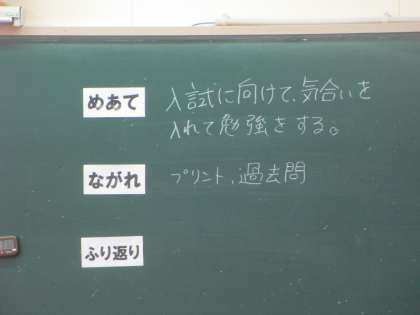 めあて 入試に向けて、気合いを
入れて勉強をする。
ながれ プリント、過去問
ふり返り